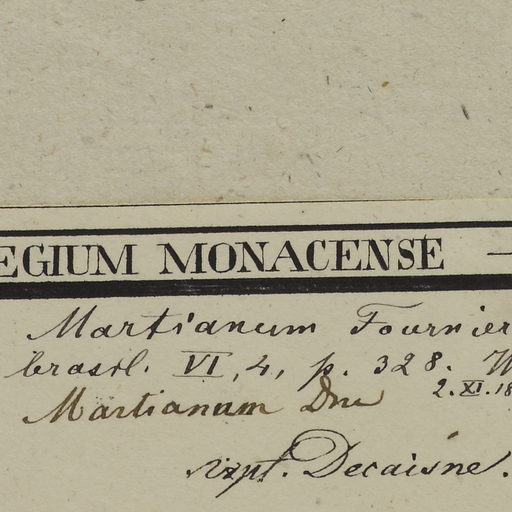 EGIUM MONACENSE —
Martianum Fournier
brasil. VI, 4, p. 328. W
2. XI. 18
Martianum Dne
script. Decaisne.